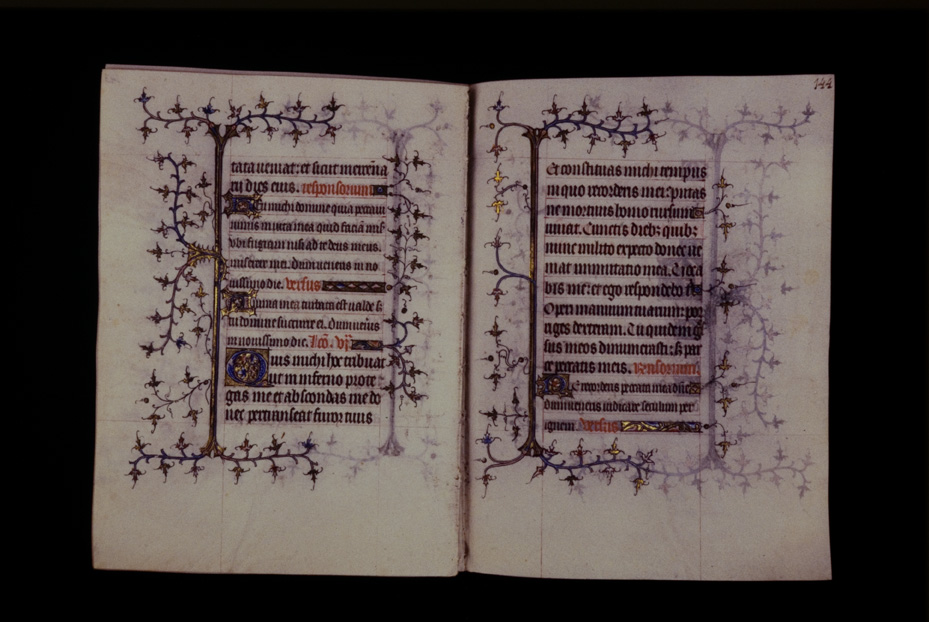 tata veniat: et sicut mercena
rij dies eius. responsorium
Heu michi domine quia peccavi
nimis in vita mea. quid faciam mis
ubi fugiam nisi ad te deus meus.
miserere mei. dum veneris in no
vissimo die. versus
Anima mea turbata est valde s
tu domine succurre ei. Dum veneris
in novissimo die. lco. vj
Quis michi hoc tribuat
ut in inferno prote
gas me et abscondas me do
nec pertranseat furor tuus
144
Et constituas michi tempus
in quo recordens mei. putas
ne mortuus homo rursum
vivat. Cunctis dieb quib
nunc milito expecto donec ve
niat immutatio mea. Voca
bis me: et ego respondebo
Operi manuum tuarum: por
riges dexteram. Tu quidem g
sus meos dinumerasti: s par
ce peccatis meis. responsorium
Ne recorderis peccata mea dne
dum veneris iudicare seculum per
ignem. versus